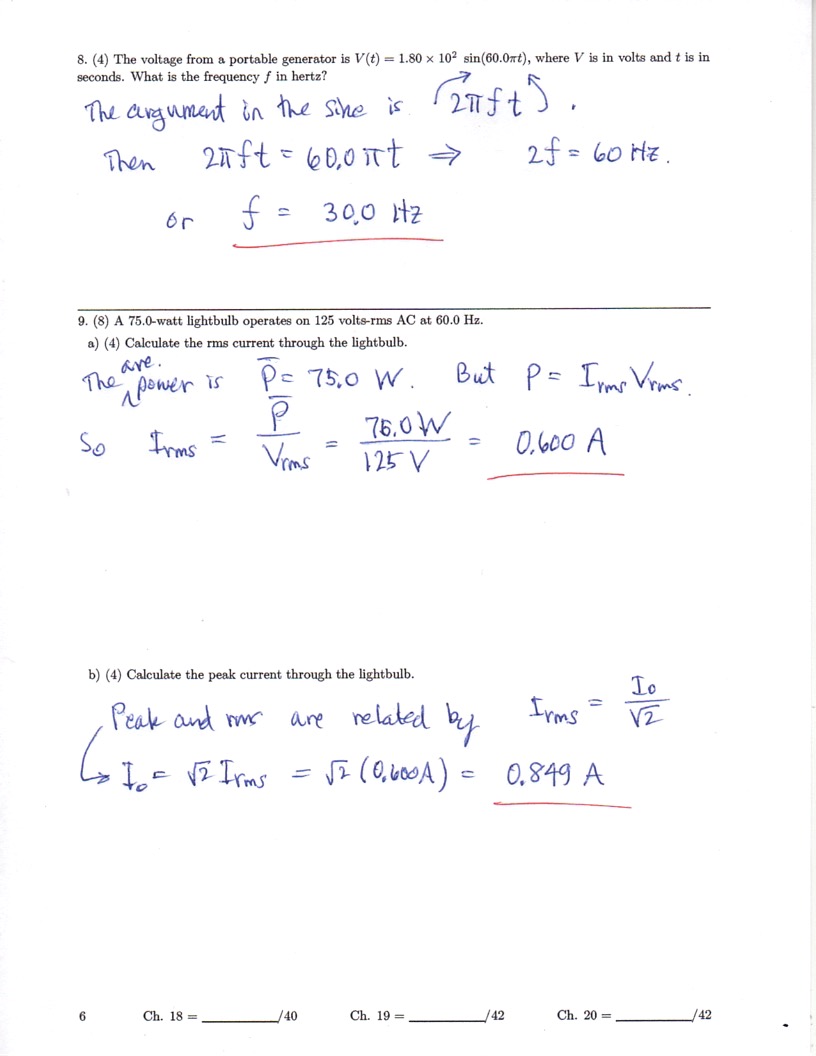 8. (4) The voltage from a portable generator is V(t) = 1.80 × 10² sin(60.0πt), where V is in volts and t is in
seconds. What is the frequency f in hertz?
The argument in the sine is (2πft).
Then 2πft = 60.0πt ⇒ 2f = 60 Hz.
or f = 30.0 Hz
9. (8) A 75.0-watt lightbulb operates on 125 volts-rms AC at 60.0 Hz.
a) (4) Calculate the rms current through the lightbulb.
The ave. power is P̅ = 75.0 W. But P = Irms Vrms.
So Irms = P̅/Vrms = 75.0 W/125 V = 0.600 A
b) (4) Calculate the peak current through the lightbulb.
Peak and rms are related by Irms = I₀/√2
↳ I₀ = √2 Irms = √2 (0.600A) = 0.849 A
6 Ch. 18 = ________/40 Ch. 19 = ________/42 Ch. 20 = ________/42